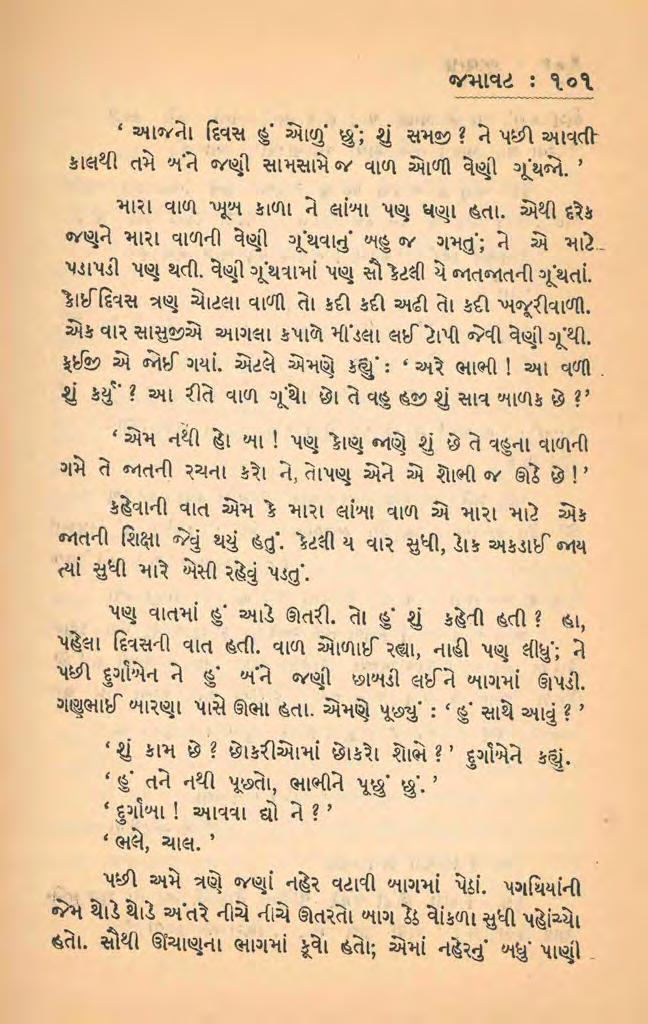 જમાવટ : ૧૦૧
‘ આજનો દિવસ હું ઓળું છું; શું સમજી ? ને પછી આવતી
કાલથી તમે બંને જણી સામસામે જ વાળ ઓળી વેણી ગૂંથજો. ’
મારા વાળ ખૂબ કાળા ને લાંબા પણ ઘણા હતા. એથી દરેક
જણને મારા વાળની વેણી ગૂંથવાનું બહુ જ ગમતું; ને એ માટે
પડાપડી પણ થતી. વેણી ગૂંથવામાં પણ સૌ કેટલી યે જાતજાતની ગૂંથતાં.
કોઈ દિવસ ત્રણ ચોટલા વાળી તો કદી કદી અઢી તો કદી ખજૂરીવાળી.
એક વાર સાસુજીએ આગલા કપાળે મીંડલા લઈ ટોપી જેવી વેણી ગૂંથી.
ફઈજી એ જોઈ ગયાં. એટલે એમણે કહ્યું : ‘ અરે ભાભી ! આ વળી
શું કર્યું ? આ રીતે વાળ ગૂંથો છો તે વહુ હજી શું સાવ બાળક છે ?’
‘ એમ નથી હો બા ! પણ કોણ જાણે શું છે તે વહુના વાળની
ગમે તે જાતની રચના કરો ને, તોપણ એને એ શોભી જ ઊઠે છે ! ’
કહેવાની વાત એમ કે મારા લાંબા વાળ એ મારા માટે એક
જાતની શિક્ષા જેવું થયું હતું. કેટલી ય વાર સુધી, ડોક અકડાઈ જાય
ત્યાં સુધી મારે બેસી રહેવું પડતું.
પણ વાતમાં હું આડે ઊતરી. તો હું શું કહેતી હતી ? હા,
પહેલા દિવસની વાત હતી. વાળ ઓળાઈ રહ્યા, નાહી પણ લીધું; ને
પછી દુર્ગાબેન ને હું બંને જણી છાબડી લઈને બાગમાં ઊપડી.
ગણુભાઈ બારણા પાસે ઊભા હતા. એમણે પૂછ્યું : ‘ હું સાથે આવું ? ’
‘ શું કામ છે ? છોકરીઓમાં છોકરો શોભે ?’ દુર્ગાબેને કહ્યું.
‘ હું તને નથી પૂછતો, ભાભીને પૂછું છું. ’
‘ દુર્ગાબા ! આવવા દ્યો ને ? ’
‘ ભલે, ચાલ. ’
પછી અમે ત્રણે જણાં નહેર વટાવી બાગમાં પેઠાં. પગથિયાંની
જેમ થોડે થોડે અંતરે નીચે નીચે ઊતરતો બાગ ઠેઠ વોંકળા સુધી પહોંચ્યો
હતો. સૌથી ઊંચાણના ભાગમાં કૂવો હતો; એમાં નહેરનું બધું પાણી